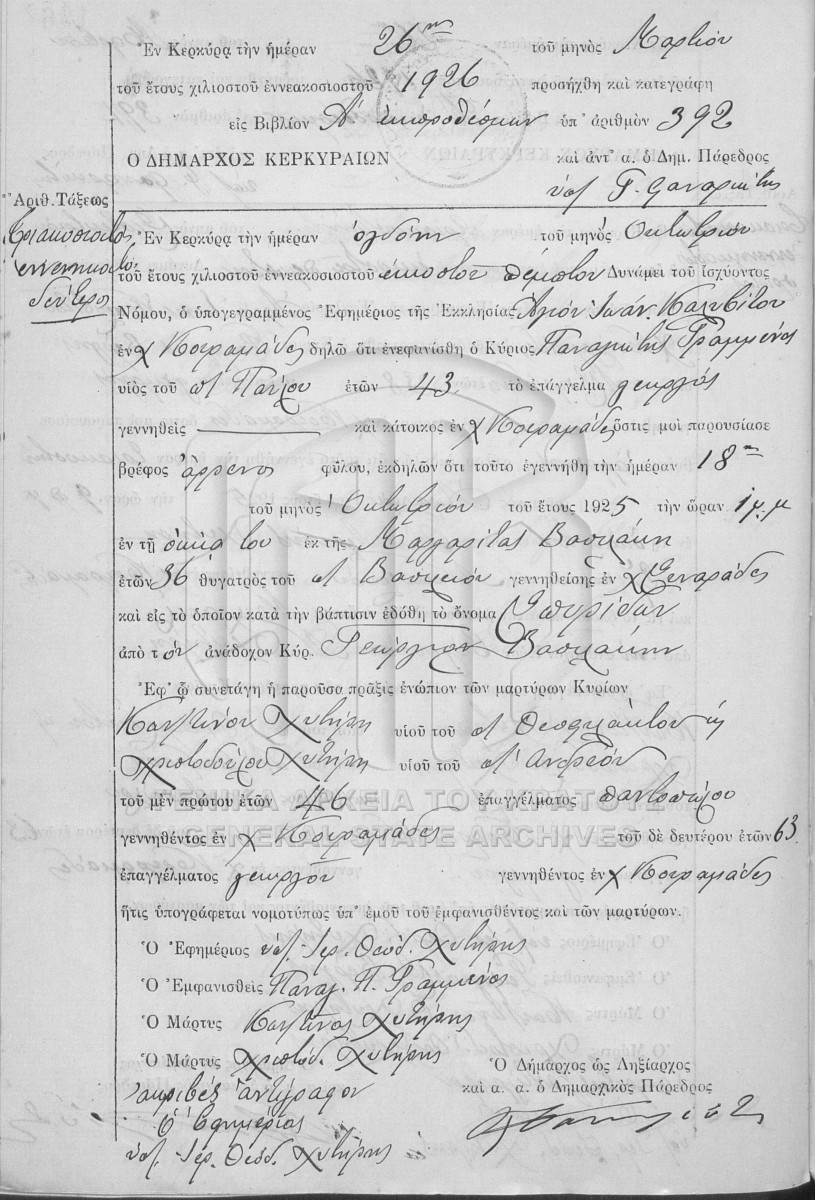 Ἐν Κερκύρᾳ τὴν ἡμέραν 26ην τοῦ μηνὸς Μαρτίου
τοῦ ἔτους χιλιοστοῦ ἐννεακοσιοστοῦ 1926 προσήχθη καὶ κατεγράφη
εἰς Βιβλίον Α' ἐκπροθέσμων ὑπ' ἀριθμὸν 392
Ο ΔΗΜΑΡΧΟΣ ΚΕΡΚΥΡΑΙΩΝ καὶ ἀντ' α. ὁ Δημ. Πάρεδρος
ὑπ/
Ἀριθ. Τάξεως
Τριακοσιοστὸς
ἐννενηκοστὸς
δεύτερος
Ἐν Κερκύρᾳ τὴν ἡμέραν ὀγδόην τοῦ μηνὸς Ὀκτωβρίου
τοῦ ἔτους χιλιοστοῦ ἐννεακοσιοστοῦ εἰκοστοῦ πέμπτου Δυνάμει τοῦ ἰσχύοντος
Νόμου, ὁ ὑπογεγραμμένος Ἐφημέριος τῆς Ἐκκλησίας Ἁγίου Ἰωάν. Καλυβίτου
ἐν χ Κοιραμάδες δηλῶ ὅτι ἐνεφανίσθη ὁ Κύριος Παναγιώτης Γραμμένος
υἱὸς τοῦ π/ Παύλου ἐτῶν 43 τὸ ἐπάγγελμα γεωργός
γεννηθεὶς καὶ κάτοικος ἐν χ Κοιραμάδες ὅστις μοὶ παρουσίασε
βρέφος ἄρρενος φύλου, ἐκδηλῶν ὅτι τοῦτο ἐγεννήθη τὴν ἡμέραν 18ην
τοῦ μηνὸς Ὀκτωβρίου τοῦ ἔτους 1925 τὴν ὥραν 1 μ.μ
ἐν τῇ οἰκίᾳ του ἐκ τῆς Μαργαρίτας Βασιλάκη
ἐτῶν 36 θυγατρὸς τοῦ π/ Βασιλείου γεννηθείσης ἐν χ Σιναράδες
καὶ εἰς τὸ ὁποῖον κατὰ τὴν βάπτισιν ἐδόθη τὸ ὄνομα Σπυρίδων
ἀπὸ τ ὸν ἀνάδοχον Κύρ. Γεώργιον Βασιλάκην
Ἐφ' ᾧ συνετάγη ἡ παροῦσα πρᾶξις ἐνώπιον τῶν μαρτύρων Κυρίων
Κων/τίνου Χυτήρη υἱοῦ τοῦ π/ Θεοφιλάκτου κ
Χριστοδούλου Χυτήρη υἱοῦ τοῦ π/ Ἀνδρέου
τοῦ μὲν πρώτου ἐτῶν 46 ἐπαγγέλματος παντοπώλου
ΓΕΝΙΚΑ ΑΡΧΕΙΑ ΤΟΥ ΚΡΑΤΟΥΣ
GENERAL STATE ARCHIVES
γεννηθέντος ἐν χ Κοιραμάδες τοῦ δὲ δευτέρου ἐτῶν 63
ἐπαγγέλματος γεωργοῦ γεννηθέντος ἐν χ Κοιραμάδες
ἥτις ὑπογράφεται νομοτύπως ὑπ' ἐμοῦ τοῦ ἐμφανισθέντος καὶ τῶν μαρτύρων.
Ὁ Ἐφημέριος ὑπ/ Ἱερ. Θεόδ. Χυτήρης
Ὁ Ἐμφανισθεὶς Παναγ. Π. Γραμμένος
Ὁ Μάρτυς Κων/τίνος Χυτήρης
Ὁ Μάρτυς Χριστόδ. Χυτήρης
Ὁ Δήμαρχος ὡς Ληξίαρχος
καὶ α. α. ὁ Δημαρχικὸς Πάρεδρος
Ἀκριβὲς ἀντίγραφον
Ὁ Ἐφημέριος
ὑπ/ Ἱερ. Θεόδ. Χυτήρης